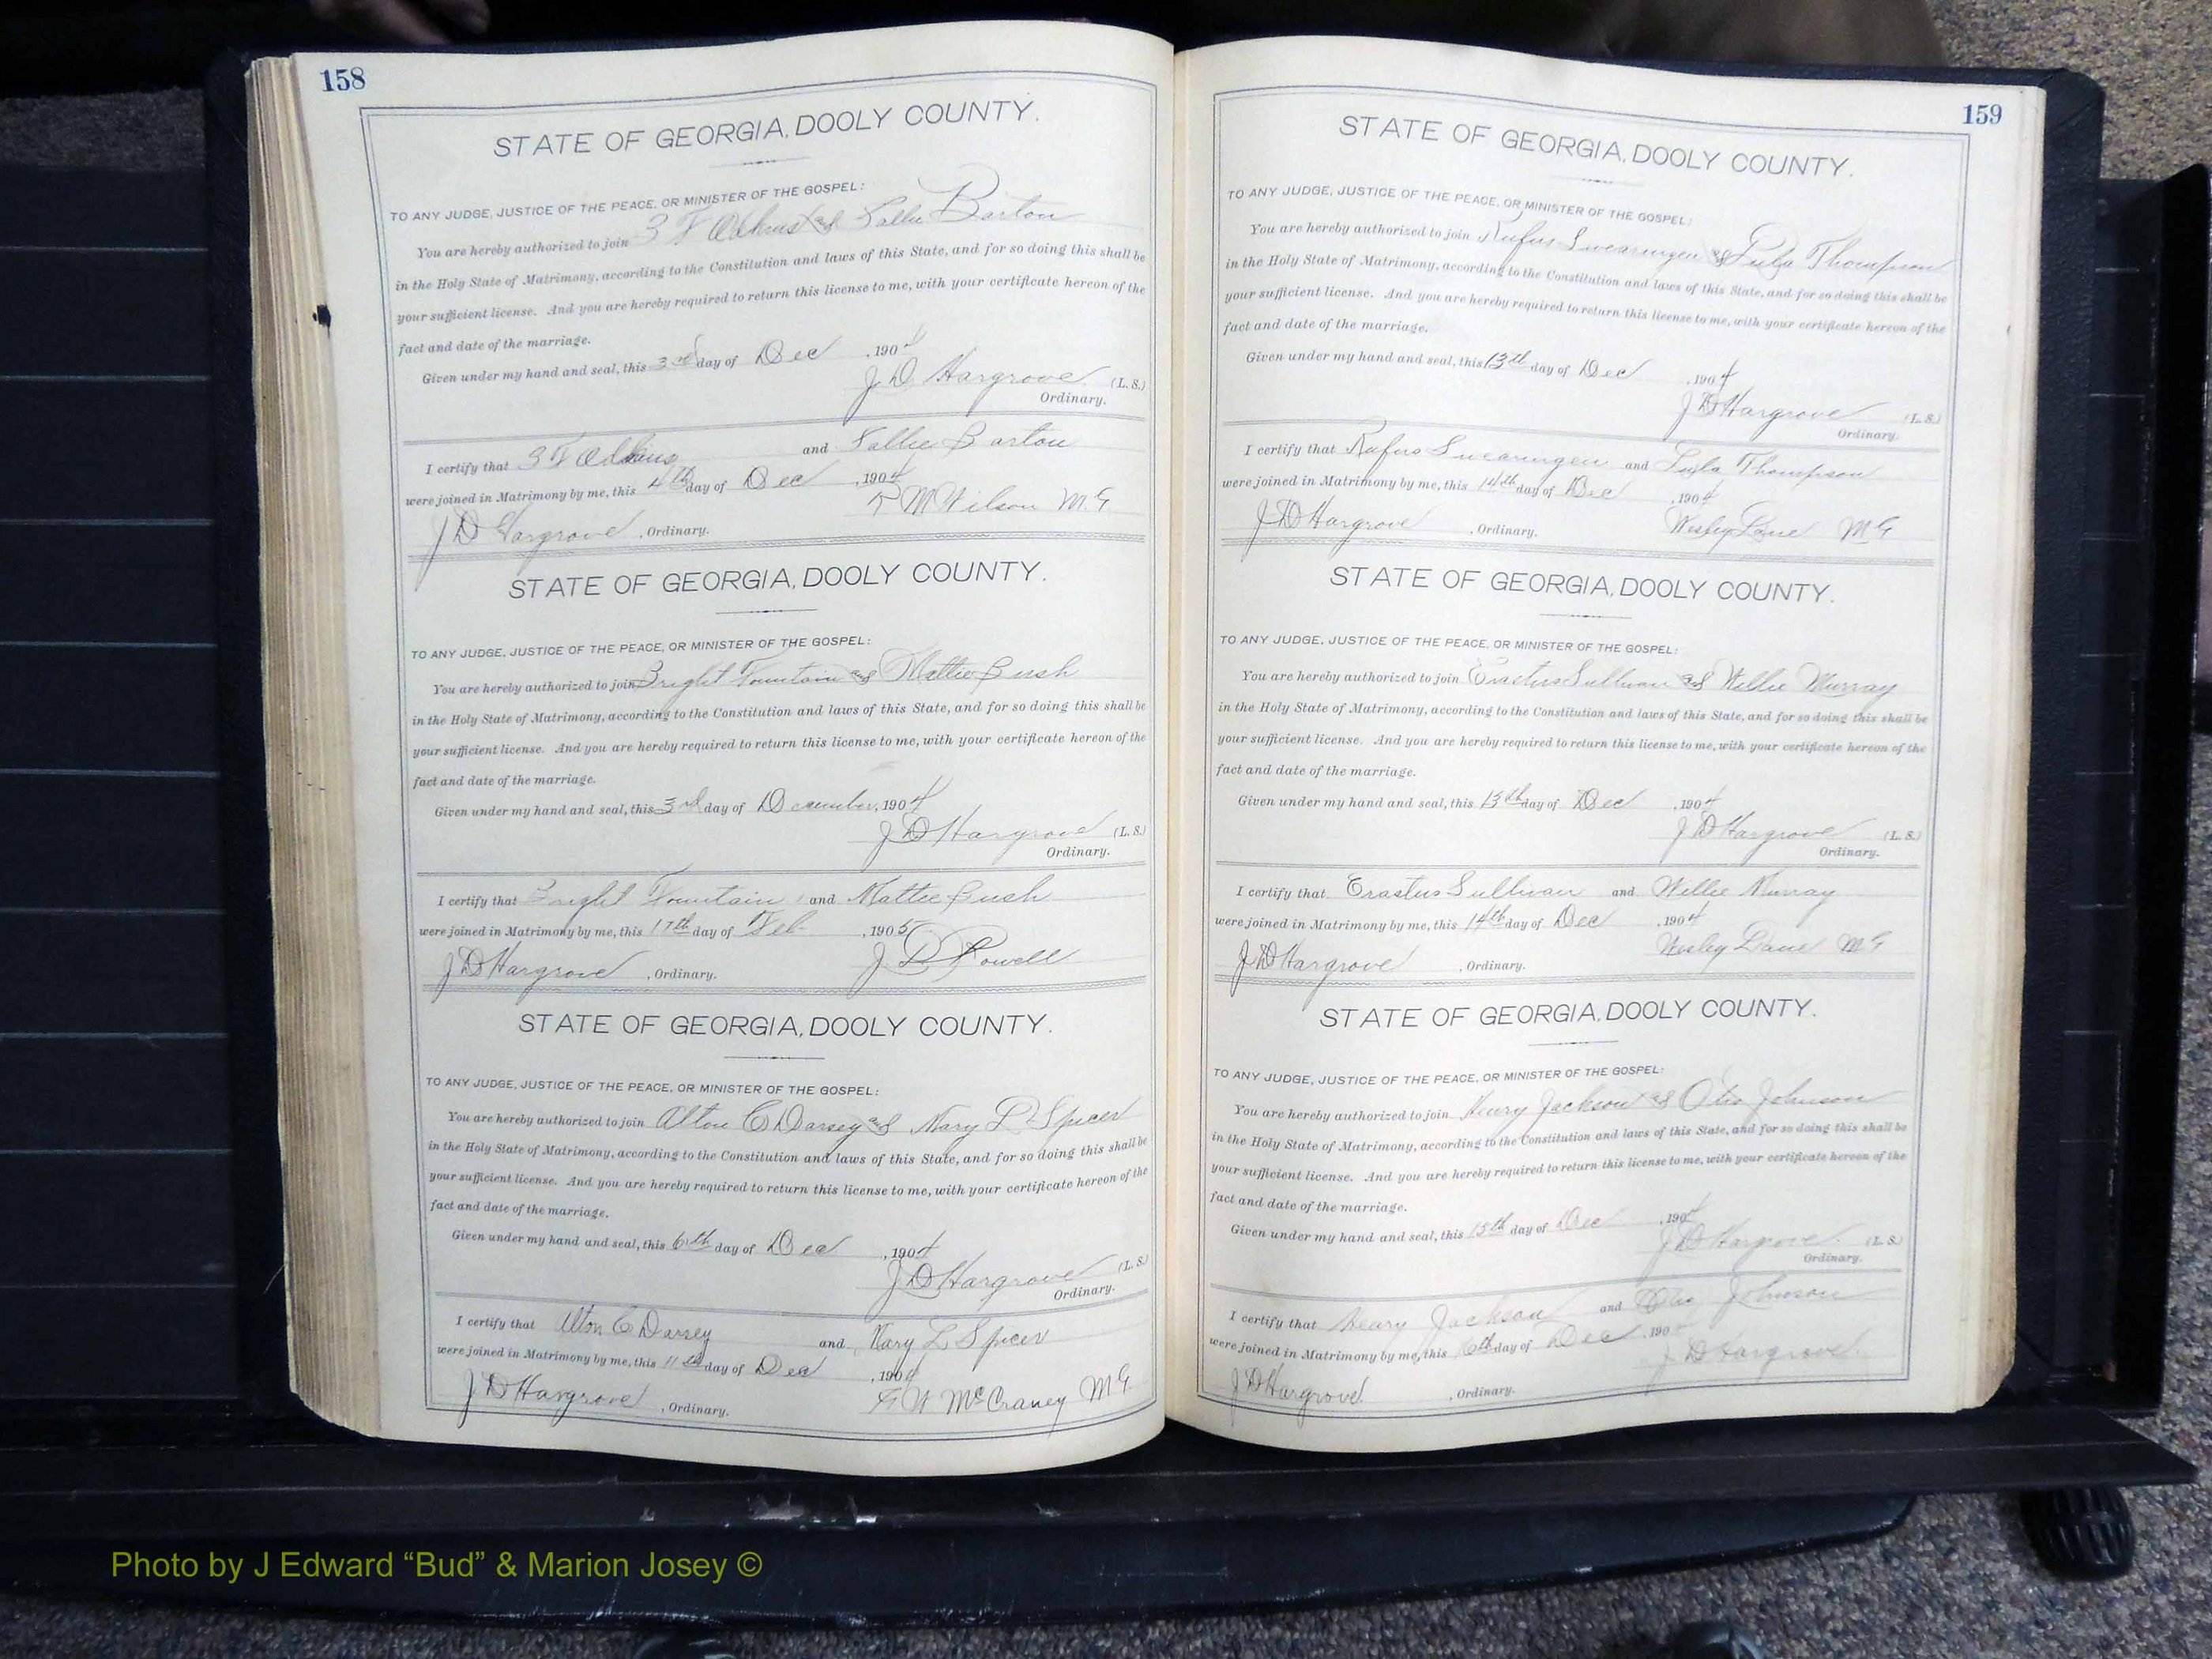 158
STATE OF GEORGIA, DOOLY COUNTY.
TO ANY JUDGE, JUSTICE OF THE PEACE, OR MINISTER OF THE GOSPEL:
You are hereby authorized to join Sallie Barton
in the Holy State of Matrimony, according to the Constitution and laws of this State, and for so doing this shall be
your sufficient license. And you are hereby required to return this license to me, with your certificate hereon of the
fact and date of the marriage.
Given under my hand and seal, this 3rd day of Dec , 1904
J D Hargrove (L. S.)
Ordinary.
I certify that and Sallie Barton
were joined in Matrimony by me, this 4th day of Dec , 1904
M Wilson M.G.
J D Hargrove , Ordinary.
STATE OF GEORGIA, DOOLY COUNTY.
TO ANY JUDGE, JUSTICE OF THE PEACE, OR MINISTER OF THE GOSPEL:
You are hereby authorized to join Bright Fountain and Mattie Bush
in the Holy State of Matrimony, according to the Constitution and laws of this State, and for so doing this shall be
your sufficient license. And you are hereby required to return this license to me, with your certificate hereon of the
fact and date of the marriage.
Given under my hand and seal, this 3rd day of December, 1904
J D Hargrove (L. S.)
Ordinary.
I certify that Bright Fountain and Mattie Bush
were joined in Matrimony by me, this 17th day of Feb , 1905
J D Powell
J D Hargrove , Ordinary.
STATE OF GEORGIA, DOOLY COUNTY.
TO ANY JUDGE, JUSTICE OF THE PEACE, OR MINISTER OF THE GOSPEL:
You are hereby authorized to join Alton C Darsey and Mary L Spicer
in the Holy State of Matrimony, according to the Constitution and laws of this State, and for so doing this shall be
your sufficient license. And you are hereby required to return this license to me, with your certificate hereon of the
fact and date of the marriage.
Given under my hand and seal, this 6th day of Dec , 1904
J D Hargrove (L. S.)
Ordinary.
I certify that Alton C Darsey and Mary L Spicer
were joined in Matrimony by me, this 11th day of Dec , 1904
McCraney M.G.
J D Hargrove , Ordinary.
159
STATE OF GEORGIA, DOOLY COUNTY.
TO ANY JUDGE, JUSTICE OF THE PEACE, OR MINISTER OF THE GOSPEL:
You are hereby authorized to join Rufus Swearingen and Lula Thompson
in the Holy State of Matrimony, according to the Constitution and laws of this State, and for so doing this shall be
your sufficient license. And you are hereby required to return this license to me, with your certificate hereon of the
fact and date of the marriage.
Given under my hand and seal, this 13th day of Dec , 1904
J D Hargrove (L. S.)
Ordinary.
I certify that Rufus Swearingen and Lula Thompson
were joined in Matrimony by me, this 14th day of Dec , 1904
Wesley Lane MG
J D Hargrove , Ordinary.
STATE OF GEORGIA, DOOLY COUNTY.
TO ANY JUDGE, JUSTICE OF THE PEACE, OR MINISTER OF THE GOSPEL:
You are hereby authorized to join Erastus Sullivan and Willie Murray
in the Holy State of Matrimony, according to the Constitution and laws of this State, and for so doing this shall be
your sufficient license. And you are hereby required to return this license to me, with your certificate hereon of the
fact and date of the marriage.
Given under my hand and seal, this 13th day of Dec , 1904
J D Hargrove (L. S.)
Ordinary.
I certify that Erastus Sullivan and Willie Murray
were joined in Matrimony by me, this 14th day of Dec , 1904
Wesley Lane MG
J D Hargrove , Ordinary.
STATE OF GEORGIA, DOOLY COUNTY.
TO ANY JUDGE, JUSTICE OF THE PEACE, OR MINISTER OF THE GOSPEL:
You are hereby authorized to join Henry Jackson and Johnson
in the Holy State of Matrimony, according to the Constitution and laws of this State, and for so doing this shall be
your sufficient license. And you are hereby required to return this license to me, with your certificate hereon of the
fact and date of the marriage.
Given under my hand and seal, this 15th day of Dec , 1904
J D Hargrove (L. S.)
Ordinary.
I certify that Henry Jackson and Johnson
were joined in Matrimony by me, this 16th day of Dec , 190
J D Hargrove
J D Hargrove , Ordinary.
Photo by J Edward “Bud” & Marion Josey ©